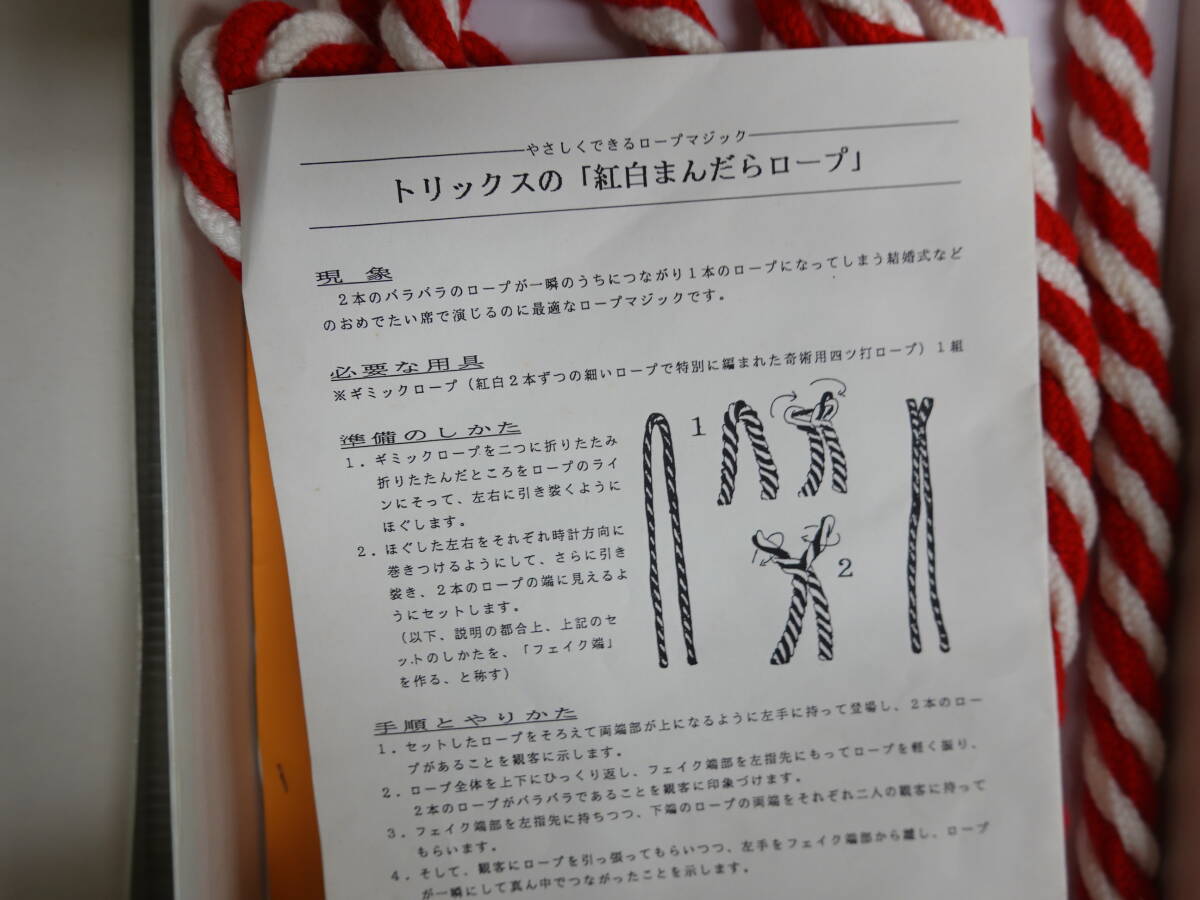 やさしくできるロープマジック
トリックスの「紅白まんだらロープ」
現 象
2本のバラバラのロープが一瞬のうちにつながり1本のロープになってしまう結婚式など
のおめでたい席で演じるのに最適なロープマジックです。
必要な用具
※ギミックロープ（紅白2本ずつの細いロープで特別に編まれた奇術用四ツ打ロープ）1組
準備のしかた
1．ギミックロープを二つに折りたたみ
折りたたんだところをロープのライ
ンにそって、左右に引き裂くように
ほぐします。
2．ほぐした左右をそれぞれ時計方向に
巻きつけるようにして、さらに引き
裂き、2本のロープの端に見えるよ
うにセットします。
（以下、説明の都合上、上記のセ
ットのしかたを、「フェイク端」
を作る、と称す）
1
2
手順とやりかた
1．セットしたロープをそろえて両端部が上になるように左手に持って登場し、2本のロー
プがあることを観客に示します。
2．ロープ全体を上下にひっくり返し、フェイク端部を左指先にもってロープを軽く振り、
2本のロープがバラバラであることを観客に印象づけます。
3．フェイク端部を左指先に持ちつつ、下端のロープの両端をそれぞれ二人の観客に持って
もらいます。
4．そして、観客にロープを引っ張ってもらいつつ、左手をフェイク端部から離し、ロープ
が一瞬にして真ん中でつながったことを示します。